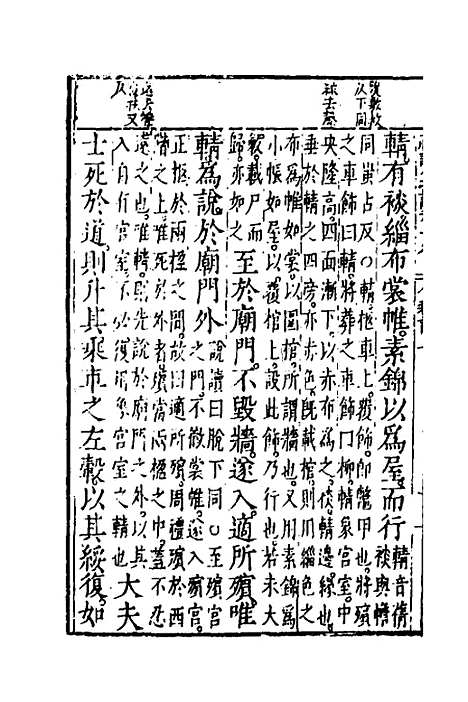 輤有裧緇布裳帷素錦以爲屋而行
輤音倩
裧與襜
同蚩占反○輤柩車上覆飾即鱉甲也將殯
之車飾曰輤將葬之車飾曰柳輤象宮室中
央隆高四面漸下以赤布爲之裧輤邊緣也
垂於輤之四旁亦赤色旣載棺則用緇色之
布爲帷如裳以圍棺所謂牆也又用素錦爲
小帳如屋以覆棺上設此飾乃行也若未大
斂載尸而
歸亦如之
至於廟門不毀牆遂入適所殯唯
輤爲說於廟門外
說讀曰脫下同○至殯宮
之門不徹裳帷遂入殯宮
正柩於兩楹之間故曰適所殯周禮殯於西
階之上唯死於外者殯當兩楹之中蓋不忍
遠之也唯輤則先說於廟門之外以其
入自有宮室不必復用象宮室之輤也
大夫
士死於道則升其乘車之左轂以其綏復如
覆敷救
以下同
遠去聲
復扶又
反